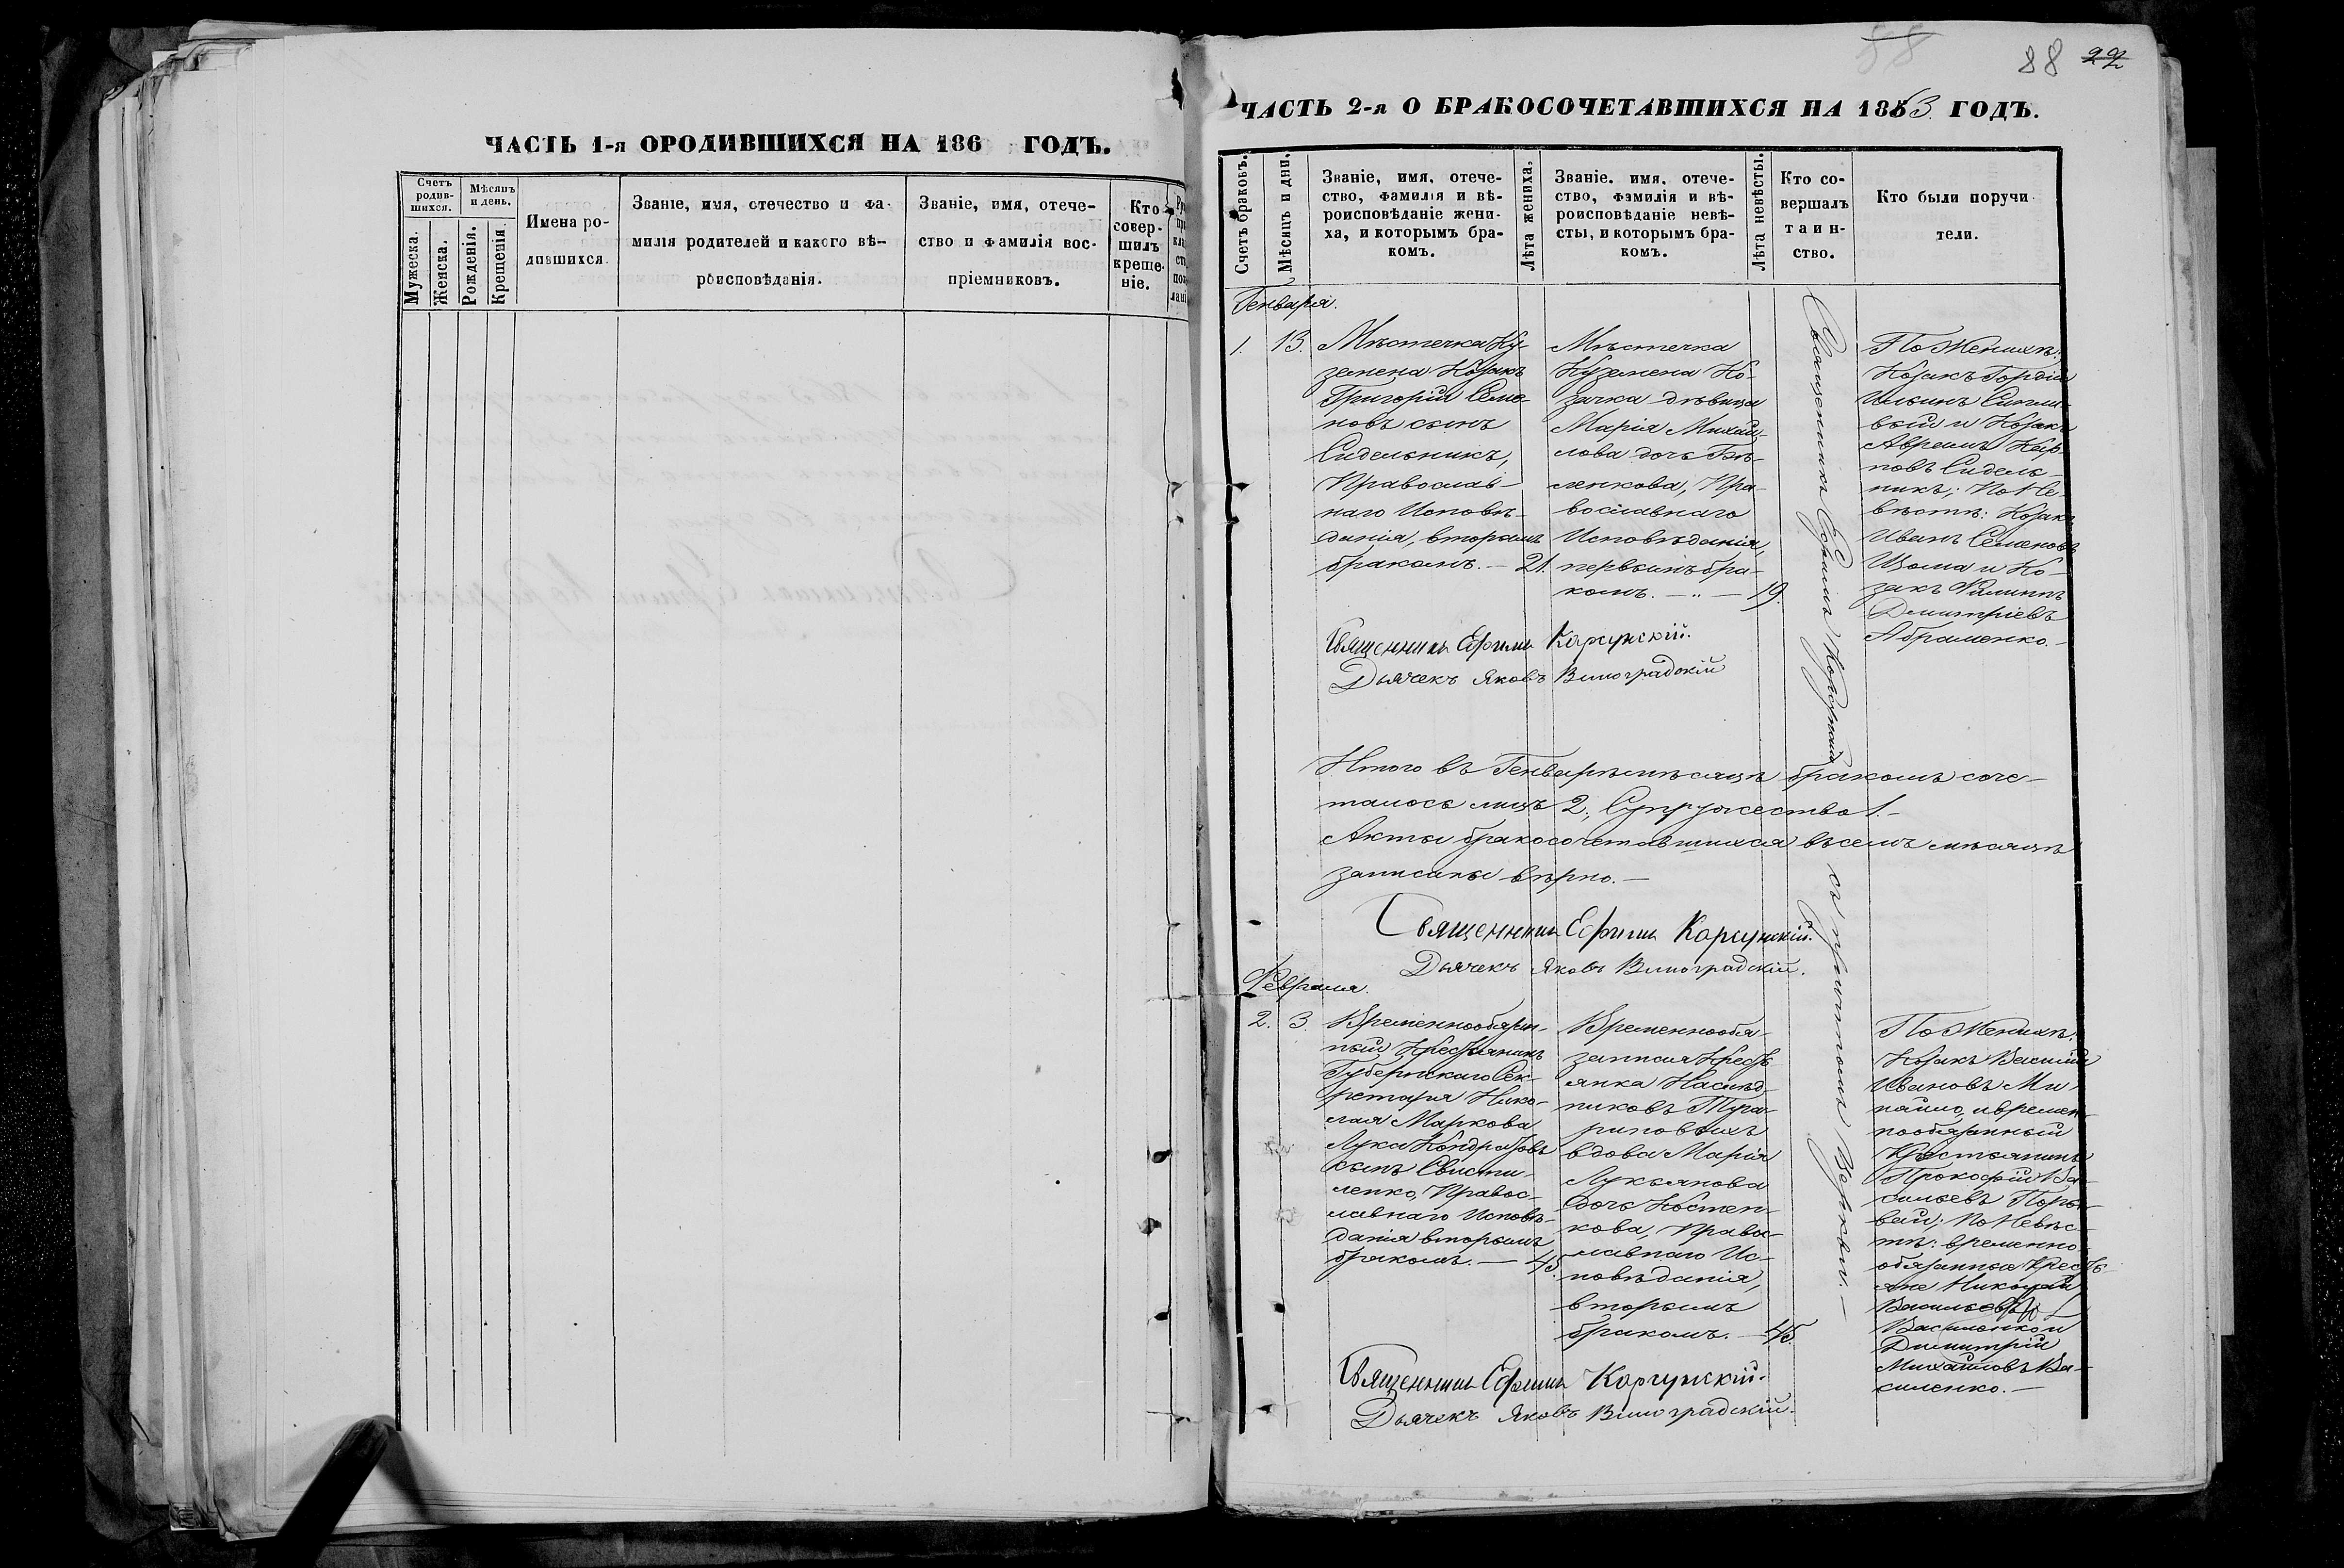 ЧАСТЬ 1-я ОРОДИВШИХСЯ НА 186 ГОДЪ.
Счетъ родив-шихся.
Мужеска.
Женска.
Мѣсяцъ и день.
Рожденія.
Крещенія.
Имена ро-
дившихся.
Званіе, имя, отечество и фа-
милія родителей и какого вѣ-
роисповѣданія.
Званіе, имя, отече-
ство и фамилія вос-
пріемниковъ.
Кто
совер-
шилъ
креще-
ніе.
88 22
ЧАСТЬ 2-я О БРАКОСОЧЕТАВШИХСЯ НА 1863 ГОДЪ.
Счетъ браковъ.
Мѣсяцъ и дни.
Званіе, имя, отече-
ство, фамилія и вѣ-
роисповѣданіе жени-
ха, и которымъ бра-
комъ.
Лѣта жениха.
Званіе, имя, отече-
ство, фамилія и вѣ-
роисповѣданіе невѣ-
сты, и которымъ бра-
комъ.
Лѣта невѣсты.
Кто со-
вершалъ
таин-
ство.
Кто были поручи
тели.
Генваря.
1. 13.
Мѣстечка Ку-
земена Козакъ
Григорій Семе-
новъ сынъ
Сидельникъ,
Православ-
наго Исповѣ-
данія, вторымъ
бракомъ. — 21.
Мѣстечка
Куземена Ко-
зачка дѣвица
Марія Михай-
лова дочь Бѣ-
ленкова, Пра-
вославнаго
Исповѣданія,
первымъ бра-
комъ. — „ — 19.
Священникъ Ефимъ Корсунскій съ причтомъ
По Женихѣ:
Козакъ Гордій
Ильинъ
вый и Козакъ
Кар-
повъ Сидель-
никъ; По Не-
вѣстѣ: Козакъ
Иванъ Семеновъ
Шома и Ко-
закъ Филиппъ
Димитріевъ
Абраменко. —
Священникъ Ефимъ Корсунскій.
Дьячекъ Яковъ Виноградскій
Итого въ Генварѣ мѣсяцѣ бракомъ соче-
талось лицъ 2, Супружество 1. —
Акты бракосочетавшихся въ семъ мѣсяцѣ
записаны вѣрно. —
Священникъ Ефимъ Корсунскій.
Дьячекъ Яковъ Виноградскій.
Февраля.
2. 3.
Временнообязан-
ный Крестьянинъ
Губернскаго Сек-
ретаря Нико-
лая Маркова
Лука Кондратовъ
сынъ Свисти-
ленко, Правос-
лавнаго Исповѣ-
данія вторымъ
бракомъ. — 45.
Временнообя-
занная Кресть
янка Наслѣд-
никовъ Тура-
риновыхъ
вдова Марія
Лукьянова
дочь Костен-
кова, Правос-
лавнаго Ис-
повѣданія,
вторымъ
бракомъ. — 45.
По Женихѣ:
Козакъ Василій
Ивановъ Ми-
хайло, и времен-
нообязанный
Крестьянинъ
Прокофій Ва-
сильевъ
По Невѣс-
тѣ: временно-
обязанные Кресть-
яне Николай
Васильевъ
Василенко и
Димитрій
Михайловъ Ва-
силенко. —
Священникъ Ефимъ Корсунскій.
Дьячекъ Яковъ Виноградскій.